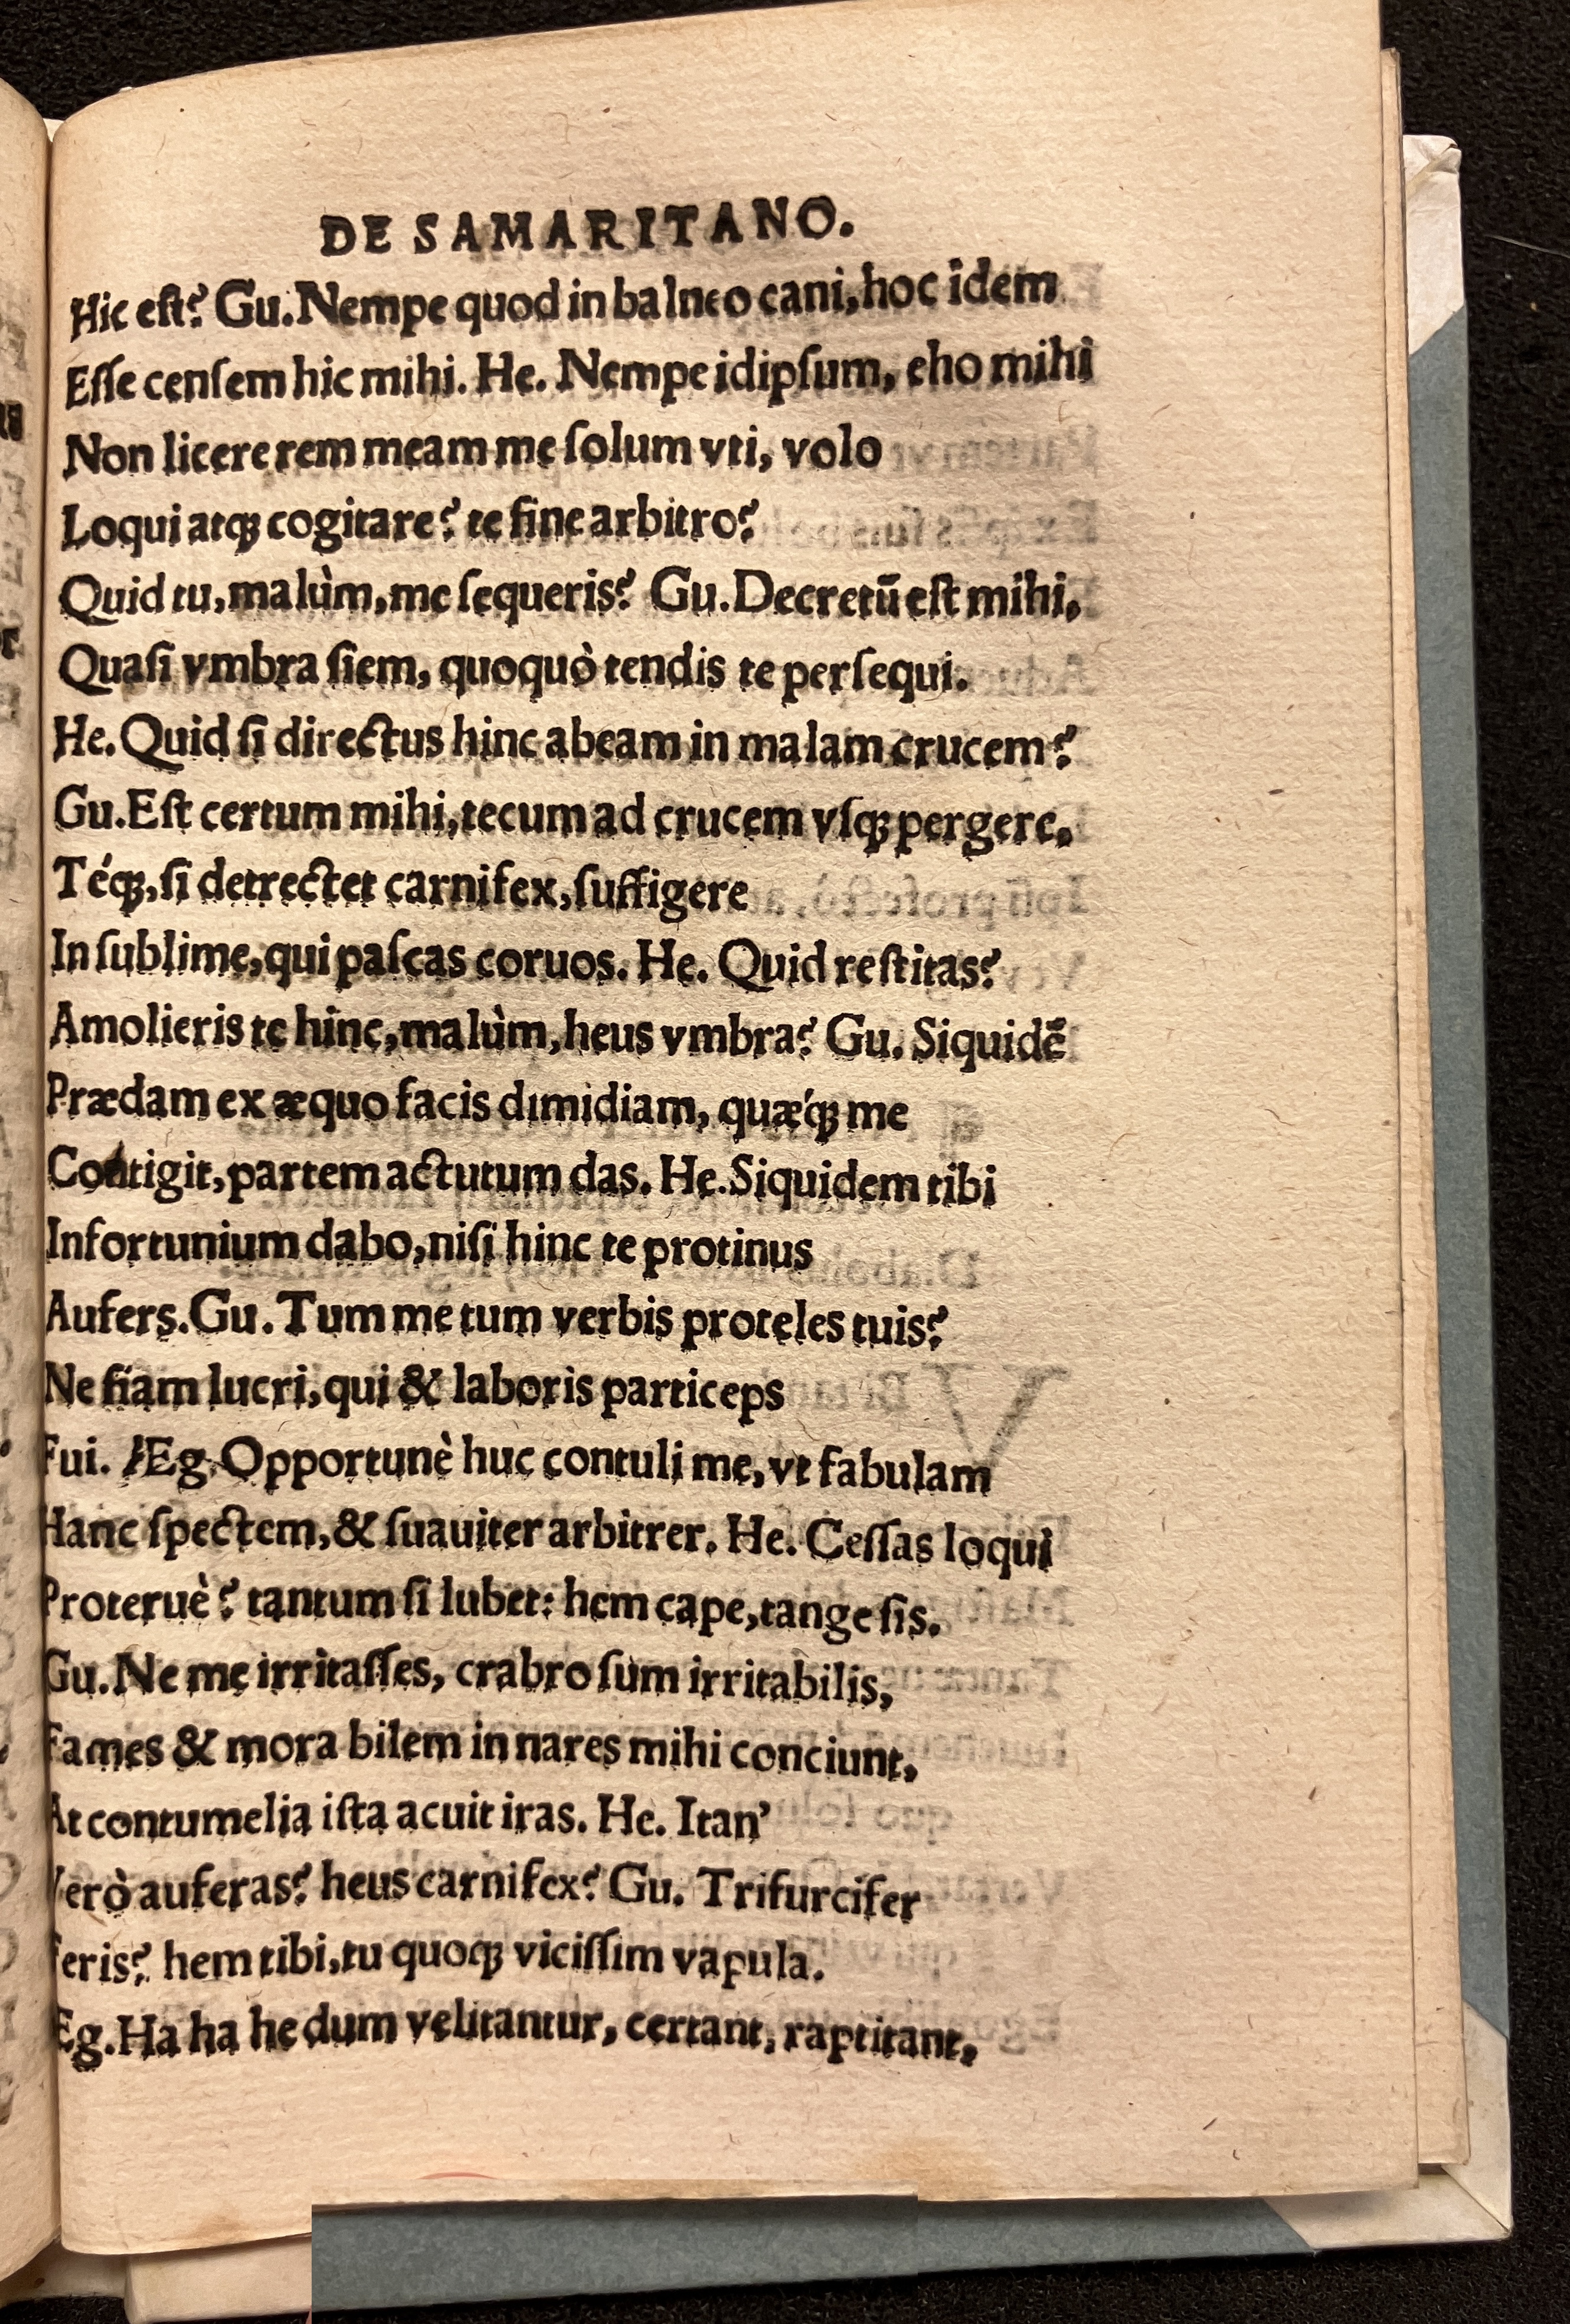 DE SAMARITANO.
Hic eſt? Gu. Nempe quod in balneo cani, hoc idem
Eſſe cenſem hic mihi. He. Nempe idipſum, eho mihi
Non licere rem meam me ſolum vti, volo
Loqui atq; cogitare? te ſine arbitro?
Quid tu, malùm, me ſequeris? Gu. Decretū eſt mihi,
Quaſi vmbra ſiem, quoquò tendis te perſequi.
He. Quid ſi directus hinc abeam in malam crucem?
Gu. Eſt certum mihi, tecum ad crucem vſq; pergere,
Téq;, ſi detrectet carnifex, ſuffigere
In ſublime, qui paſcas coruos. He. Quid reſtitas?
Amolieris te hinc, malùm, heus vmbra? Gu. Siquidē
Prædam ex æquo facis dimidiam, quæ'q; me
Contigit, partem actutum das. He. Siquidem tibi
Infortunium dabo, niſi hinc te protinus
Aufers. Gu. Tum me tum verbis proteles tuis?
Ne fiam lucri, qui & laboris particeps
Fui. Eg. Opportunè huc contuli me, vt fabulam
Hanc ſpectem, & ſuauiter arbitrer. He. Ceſſas loqui
Proteruè? tantum ſi lubet: hem cape, tange ſis.
Gu. Ne me irritaſſes, crabro ſum irritabilis,
Fames & mora bilem in nares mihi conciunt,
At contumelia iſta acuit iras. He. Itan'
Verò auferas? heus carnifex? Gu. Trifurcifer
Feris? hem tibi, tu quoq; viciſſim vapula.
Eg. Ha ha he dum velitantur, certant, raptitant,